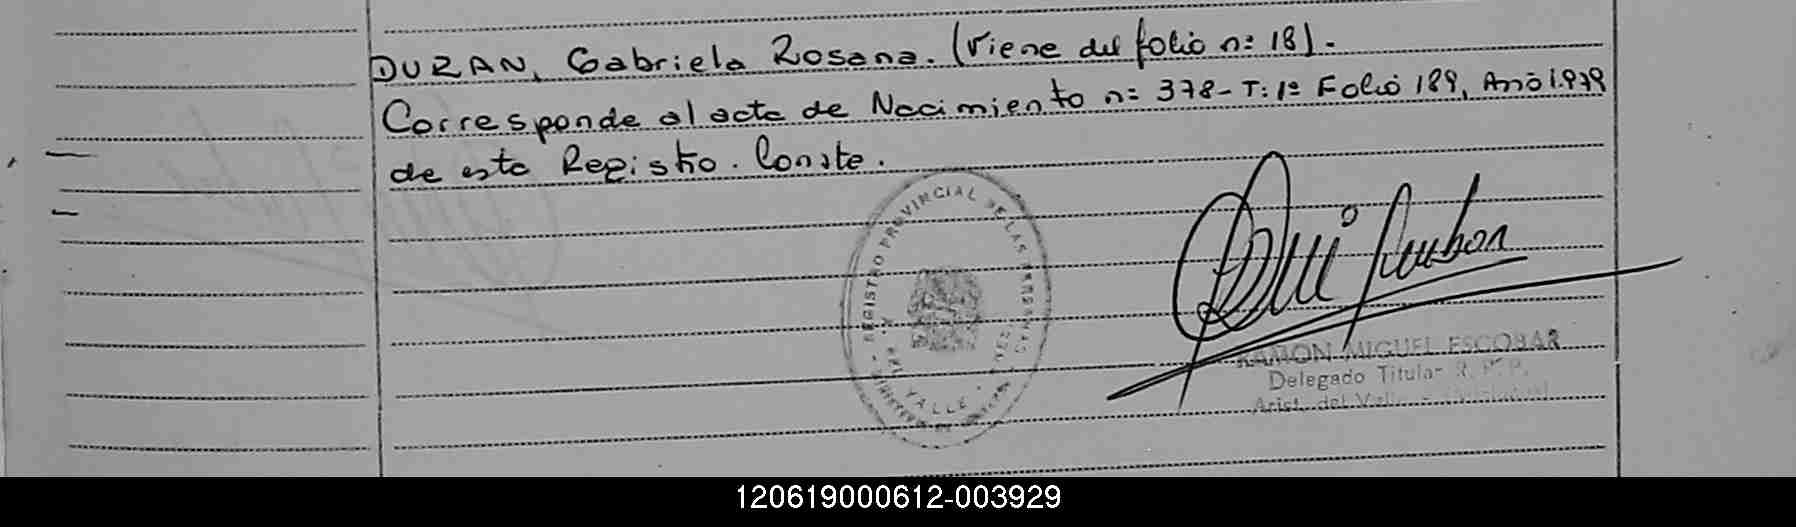 DURAN, Gabriela Rosana. (Viene del folio n: 18).-
Corresponde al acta de Nacimiento n: 378- T: 1º Folio 189, Año 1.979
de este Registro. Conste.
REGISTRO PROVINCIAL DE LAS PERSONAS
DEL VALLE
RAMON MIGUEL ESCOBAR
Delegado Titular R. P. P.
Arist. del Valle
120619000612-003929